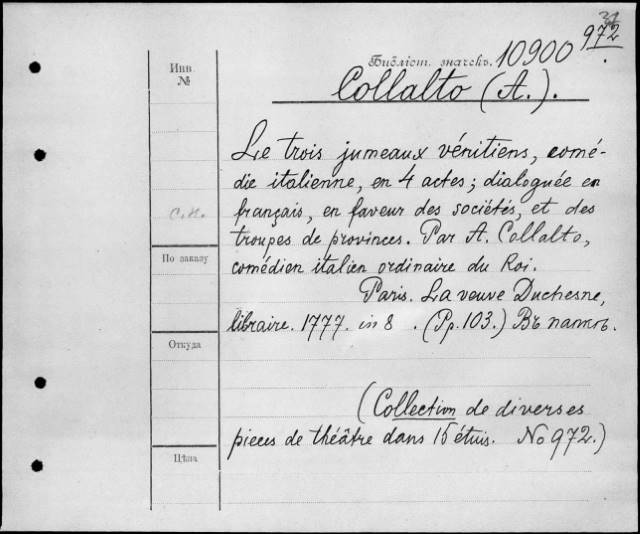 31
972
Библіот. значекъ. 10900
Collalto (A.).
Инв.
№
Le trois jumeaux vénitiens, comé-
die italienne, en 4 actes; dialoguée en
français, en faveur des sociétés, et des
troupes de provinces. Par A. Collalto,
comédien italien ordinaire du Roi.
Paris. La veuve Duchesne,
libraire. 1777. in 8. (Pp. 103.) Въ папкѣ.
(Collection de diverses
pieces de théâtre dans 15 étuis. No 972.)
По заказу
Откуда
Цѣна